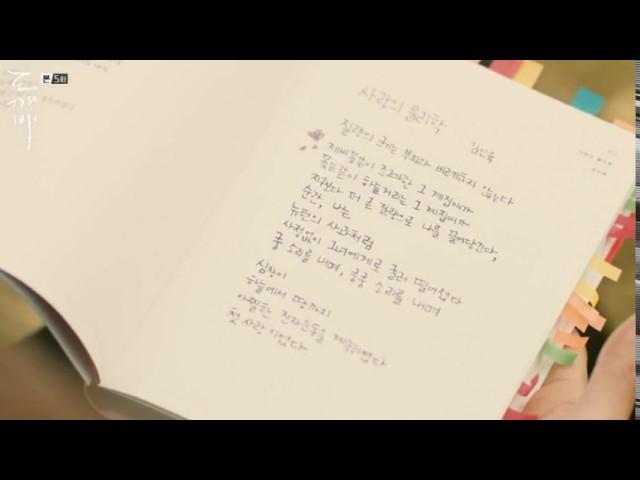 도깨비
본 5화
사랑의 물리학
김인육
질량의 크기는 부피와 비례하지 않는다
제비꽃같이 조그마한 그 계집애가
꽃잎같이 하늘거리는 그 계집애가
지구보다 더 큰 질량으로 나를 끌어당긴다,
순간, 나는
뉴턴의 사과처럼
사정없이 그녀에게로 굴러 떨어졌다
쿵 소리를 내며, 쿵쿵 소리를 내며
심장이
하늘에서 땅까지
아찔한 진자운동을 계속하였다
첫 사랑 이었다